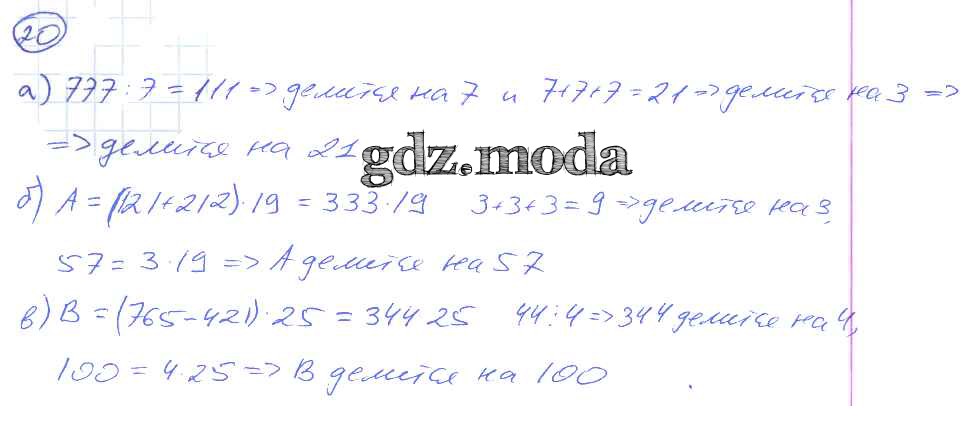 20
а) 777 : 7 = 111 => делится на 7 и 7+7+7 = 21 => делится на 3 =>
=> делится на 21
gdz.moda
б) А = (121+212)·19 = 333·19 3+3+3 = 9 => делится на 3,
57 = 3·19 => А делится на 57
в) В = (765-421)·25 = 344 25 44⋮4 => 344 делится на 4,
100 = 4·25 => В делится на 100